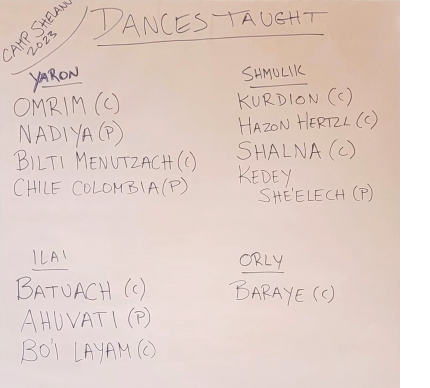 CAMP SHELANU
2023
DANCES TAUGHT
YARON
OMRIM (C)
NADIYA (P)
BILTI MENUTZACH (C)
CHILE COLOMBIA (P)
SHMULIK
KURDION (C)
HAZON HERTZL (C)
SHALNA (C)
KEDEY
SHE'ELECH (P)
ILAI
BATUACH (C)
AHUVATI (P)
BO'I LAYAM (C)
ORLY
BARAYE (C)